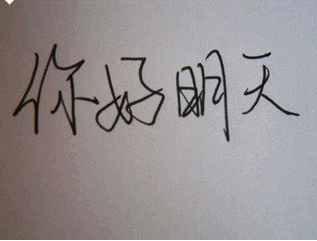 你好明天